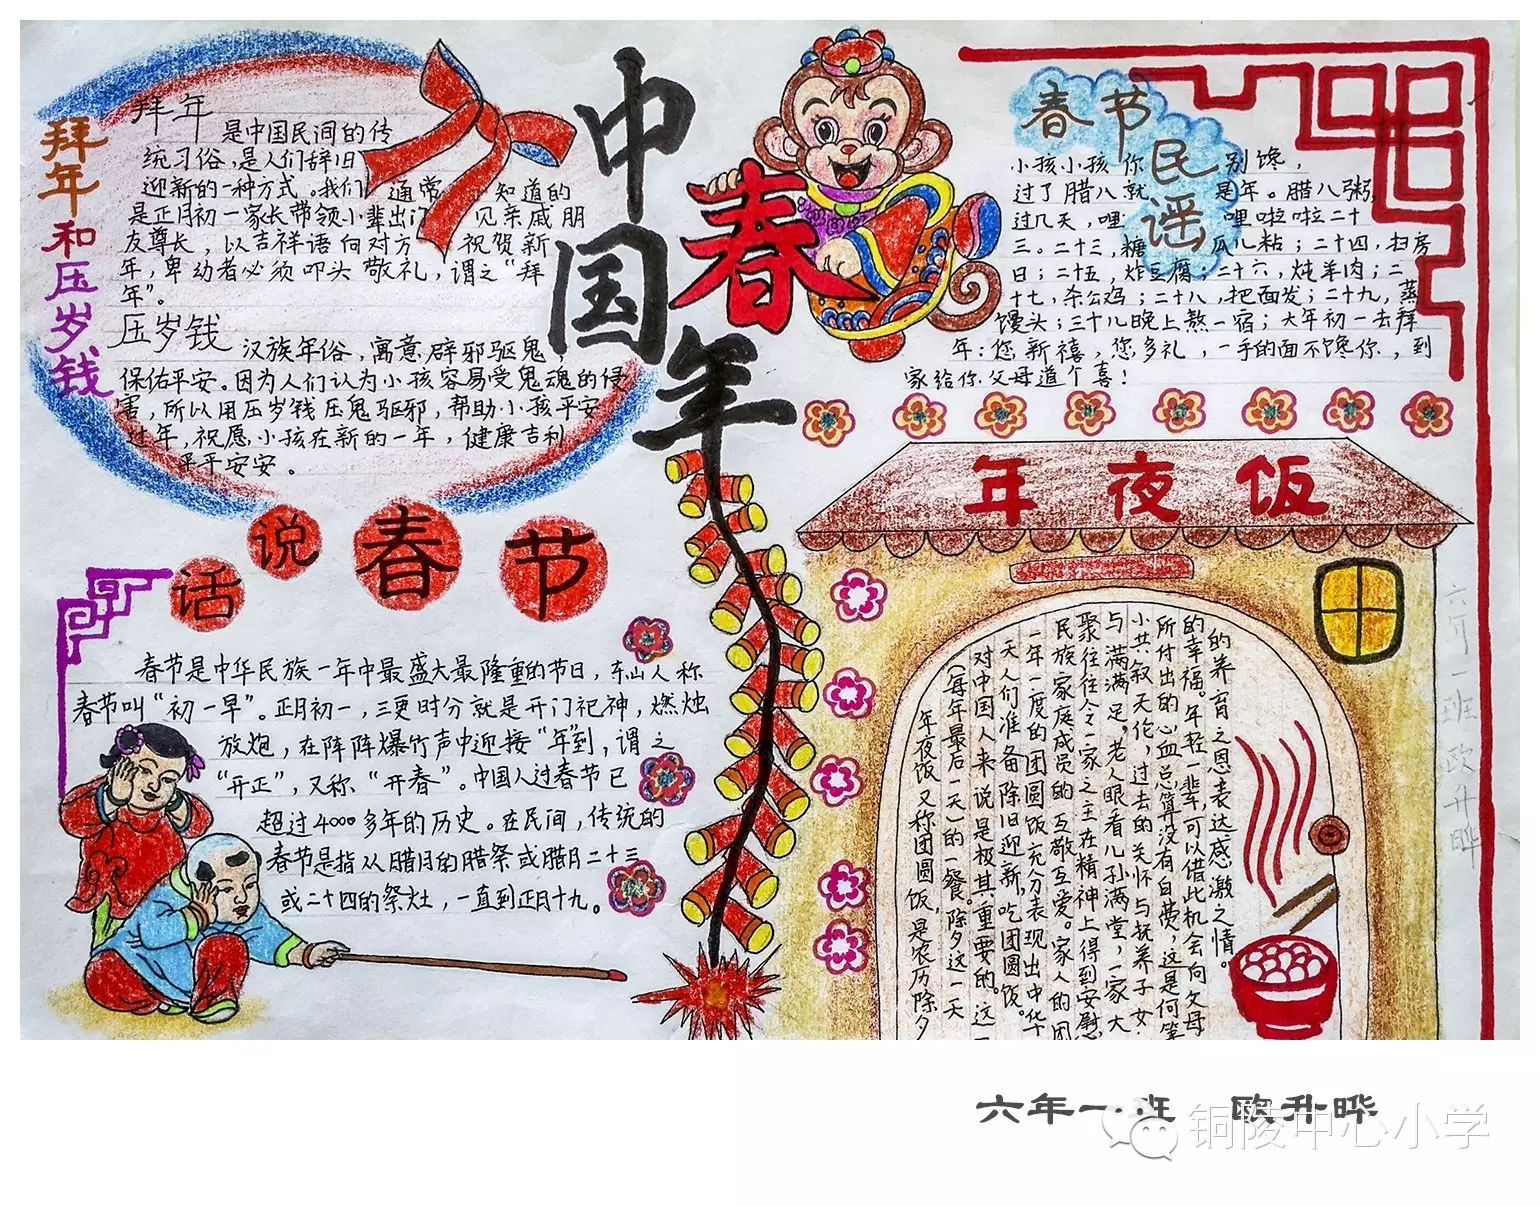 中国年
春
拜年和压岁钱
拜年
是中国民间的传
统习俗,是人们辞旧
迎新的一种方式。我们通常知道的
是正月初一家长带领小辈出门见亲戚朋
友尊长,以吉祥语向对方祝贺新
年,卑幼者必须叩头敬礼,谓之“拜
年”。
压岁钱
汉族年俗,寓意辟邪驱鬼,
保佑平安。因为人们认为小孩容易受鬼魂的侵
害,所以用压岁钱压鬼驱邪,帮助小孩平安
过年,祝愿小孩在新的一年,健康吉利
平平安安。
春节民谣
小孩小孩你别馋,
过了腊八就是年。腊八粥,
过几天,哩哩啦啦二十
三。二十三,糖瓜儿粘;二十四,扫房
日;二十五,炸豆腐;二十六,炖羊肉;二
十七,杀公鸡;二十八,把面发;二十九,蒸
馒头;三十儿晚上熬一宿;大年初一去拜
年:您新禧,您多礼,一手的面不馋你,到
家给你父母道个喜!
话说春节
春节是中华民族一年中最盛大最隆重的节日,东山人称
春节叫“初一早”。正月初一,三更时分就是开门祀神,燃烛
放炮,在阵阵爆竹声中迎接“年”到,谓之
“开正”,又称“开春”。中国人过春节已
超过4000多年的历史。在民间,传统的
春节是指从腊月的腊祭或腊月二十三
或二十四的祭灶,一直到正月十九。
年夜饭
年夜饭又称团圆饭,是农历除夕
(每年最后一天)的一餐。除夕这一天
对中国人来说是极其重要的。这一
天人们准备除旧迎新,吃团圆饭。
一年一度的团圆饭充分表现出中华
民族家庭成员的互敬互爱。家人的团
聚往往令一家之主在精神上得到安慰
与满足。老人眼看儿孙满堂,一家大
小共叙天伦,过去的关怀与抚养子女
所付出的心血总算没有白费,这是何等
的幸福。年轻一辈,可以借此机会向父母
的养育之恩表达感激之情。
六年一班 欧升晔
六年一班 欧升晔
铜陵中心小学